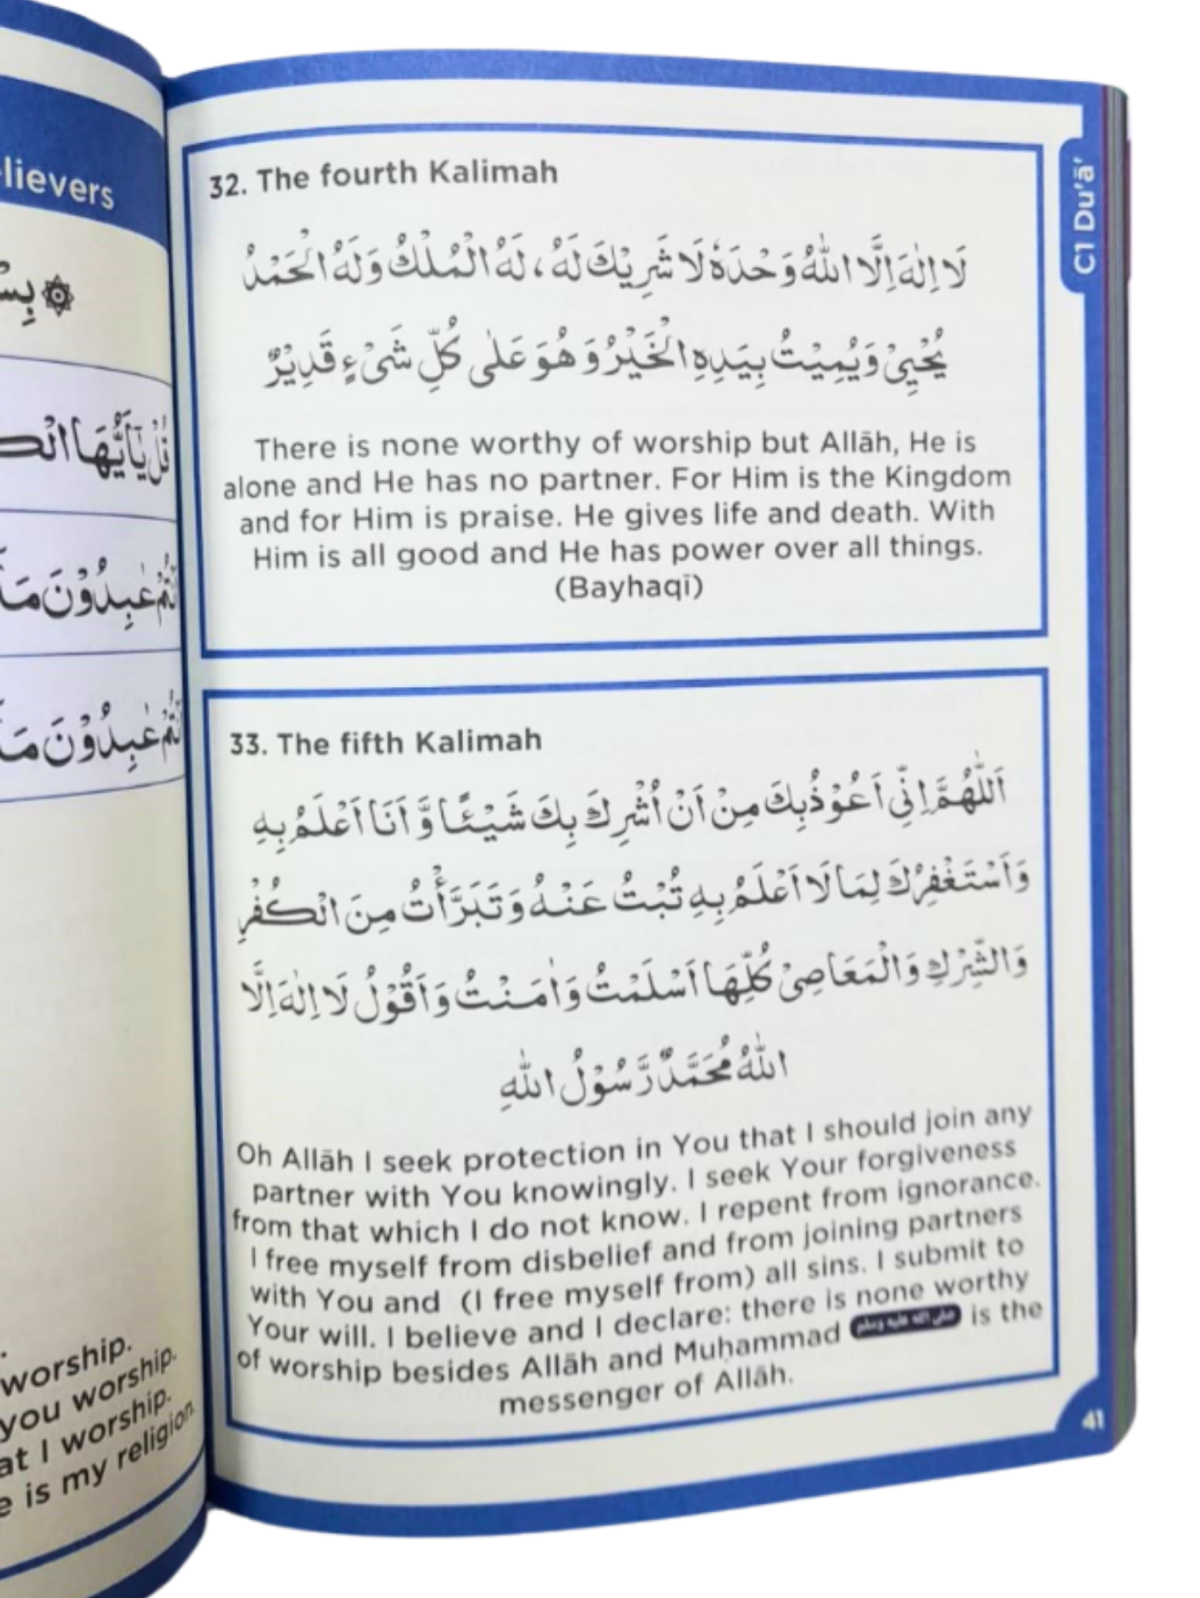 lievers
بِسْ
قُلْ يٰٓاَيُّهَا الْكٰ
عٰبِدُوْنَ مَآ
عٰبِدُوْنَ مَآ
worship.
you worship.
at I worship.
e is my religion.
32. The fourth Kalimah
لَا اِلٰهَ اِلَّا اللّٰهُ وَحْدَهٗ لَا شَرِيْكَ لَهُ، لَهُ الْمُلْكُ وَلَهُ الْحَمْدُ
يُحْيِيْ وَيُمِيْتُ بِيَدِهِ الْخَيْرُ وَهُوَ عَلٰى كُلِّ شَىْءٍ قَدِيْرٌ
There is none worthy of worship but Allāh, He is
alone and He has no partner. For Him is the Kingdom
and for Him is praise. He gives life and death. With
Him is all good and He has power over all things.
(Bayhaqī)
33. The fifth Kalimah
اَللّٰهُمَّ اِنِّيْ اَعُوْذُبِكَ مِنْ اَنْ اُشْرِكَ بِكَ شَيْئًا وَّ اَنَا اَعْلَمُ بِهِ
وَاَسْتَغْفِرُكَ لِمَا لَا اَعْلَمُ بِهِ تُبْتُ عَنْهُ وَتَبَرَّأْتُ مِنَ الْكُفْرِ
وَالشِّرْكِ وَالْمَعَاصِيْ كُلِّهَا اَسْلَمْتُ وَاٰمَنْتُ وَاَقُوْلُ لَا اِلٰهَ اِلَّا
اللّٰهُ مُحَمَّدٌ رَّسُوْلُ اللّٰهِ
Oh Allāh I seek protection in You that I should join any
partner with You knowingly. I seek Your forgiveness
from that which I do not know. I repent from ignorance.
I free myself from disbelief and from joining partners
with You and (I free myself from) all sins. I submit to
Your will. I believe and I declare: there is none worthy
of worship besides Allāh and Muḥammad صلى الله عليه وسلم is the
messenger of Allāh.
C1 Du'ā'
41